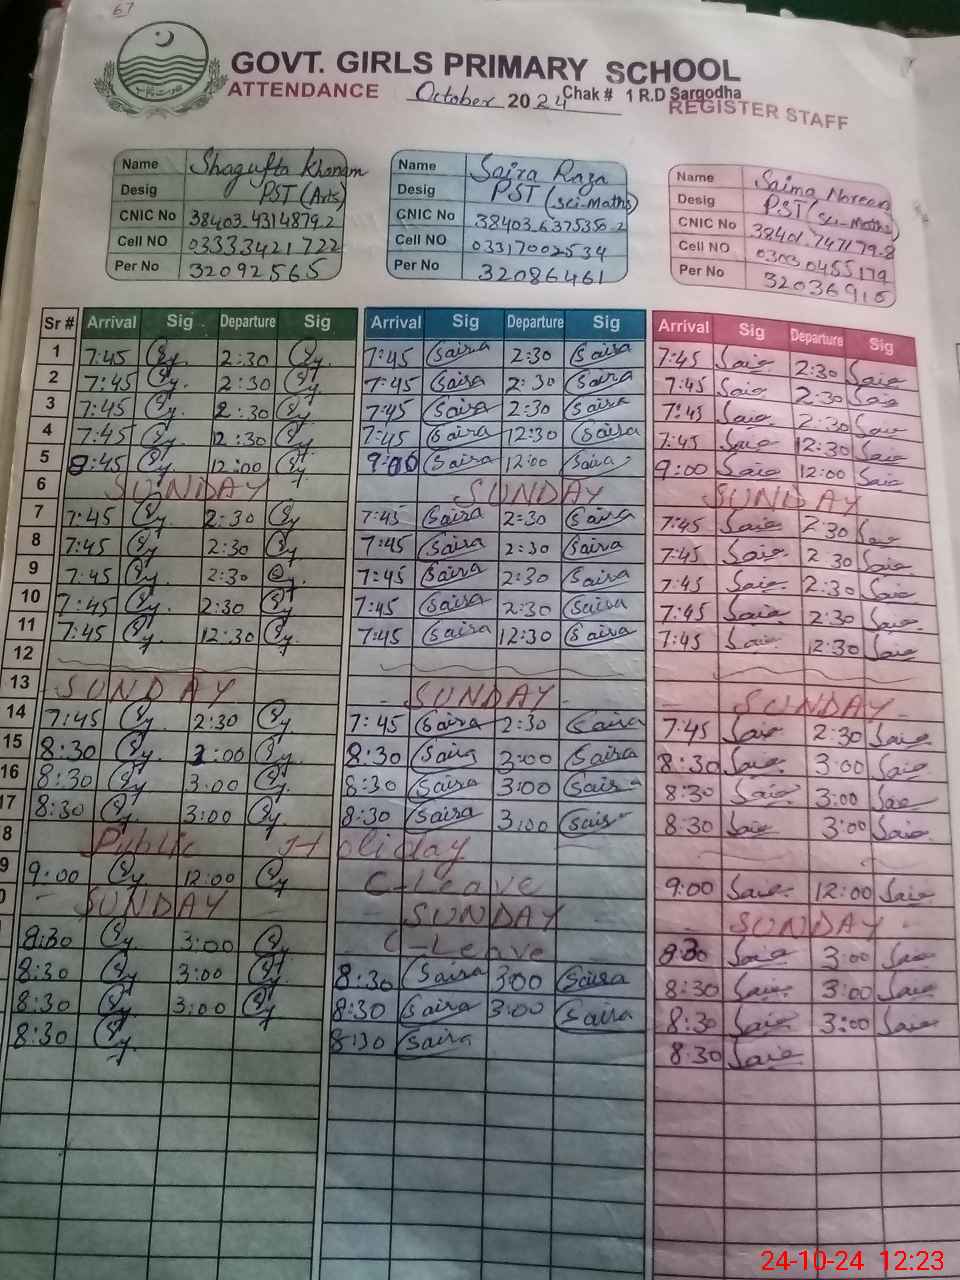 67
GOVT. GIRLS PRIMARY SCHOOL
ATTENDANCE October 2024 Chak # 1 R.D Sargodha
REGISTER STAFF
Name Shagufta Khanam
Desig PST (Arts)
CNIC No 38403-4314879-2
Cell NO 03333421722
Per No 32092565
Name Saira Raza
Desig PST (Sci-Maths)
CNIC No 38403-6375356-2
Cell NO 03317002534
Per No 32086461
Name Saima Noreen
Desig PST (Sci-Maths)
CNIC No 38401-7471179-8
Cell NO 03030455179
Per No 32036916
Sr # Arrival Sig Departure Sig Arrival Sig Departure Sig Arrival Sig Departure Sig
1 7:45 Sy. 2:30 Sy. 7:45 Saira 2:30 Saira 7:45 Saie 2:30 Saie
2 7:45 Sy 2:30 Sy 7:45 Saira 2:30 Saira 7:45 Saie 2:30 Saie
3 7:45 Sy 2:30 Sy 7:45 Saira 2:30 Saira 7:45 Saie 2:30 Saie
4 7:45 Sy 12:30 Sy 7:45 Saira 12:30 Saira 7:45 Saie 12:30 Saie
5 8:45 Sy 12:00 Sy 9:00 Saira 12:00 Saira 9:00 Saie 12:00 Saie
6 SUNDAY SUNDAY SUNDAY
7 7:45 Sy 2:30 Sy 7:45 Saira 2:30 Saira 7:45 Saie 2:30 Saie
8 7:45 Sy 2:30 Sy 7:45 Saira 2:30 Saira 7:45 Saie 2:30 Saie
9 7:45 Sy 2:30 Sy. 7:45 Saira 2:30 Saira 7:45 Saie 2:30 Saie
10 7:45 Sy 2:30 Sy 7:45 Saira 2:30 Saira 7:45 Saie 2:30 Saie
11 7:45 Sy 12:30 Sy 7:45 Saira 12:30 Saira 7:45 Saie 12:30 Saie
12
13 SUNDAY SUNDAY SUNDAY
14 7:45 Sy 2:30 Sy 7:45 Saira 2:30 Saira 7:45 Saie 2:30 Saie
15 8:30 Sy 3:00 Sy 8:30 Saira 3:00 Saira 8:30 Saie 3:00 Saie
16 8:30 Sy 3:00 Sy 8:30 Saira 3:00 Saira 8:30 Saie 3:00 Saie
17 8:30 Sy 3:00 Sy 8:30 Saira 3:00 Saira 8:30 Saie 3:00 Saie
8 Public Holiday
9 9:00 Sy 12:00 Sy C-Leave 9:00 Saie 12:00 Saie
0 SUNDAY SUNDAY SUNDAY
8:30 Sy 3:00 Sy C-Leave 8:30 Saie 3:00 Saie
8:30 Sy 3:00 Sy 8:30 Saira 3:00 Saira 8:30 Saie 3:00 Saie
8:30 Sy 3:00 Sy 8:30 Saira 3:00 Saira 8:30 Saie 3:00 Saie
8:30 Sy 8:30 Saira 8:30 Saie
24-10-24 12:23